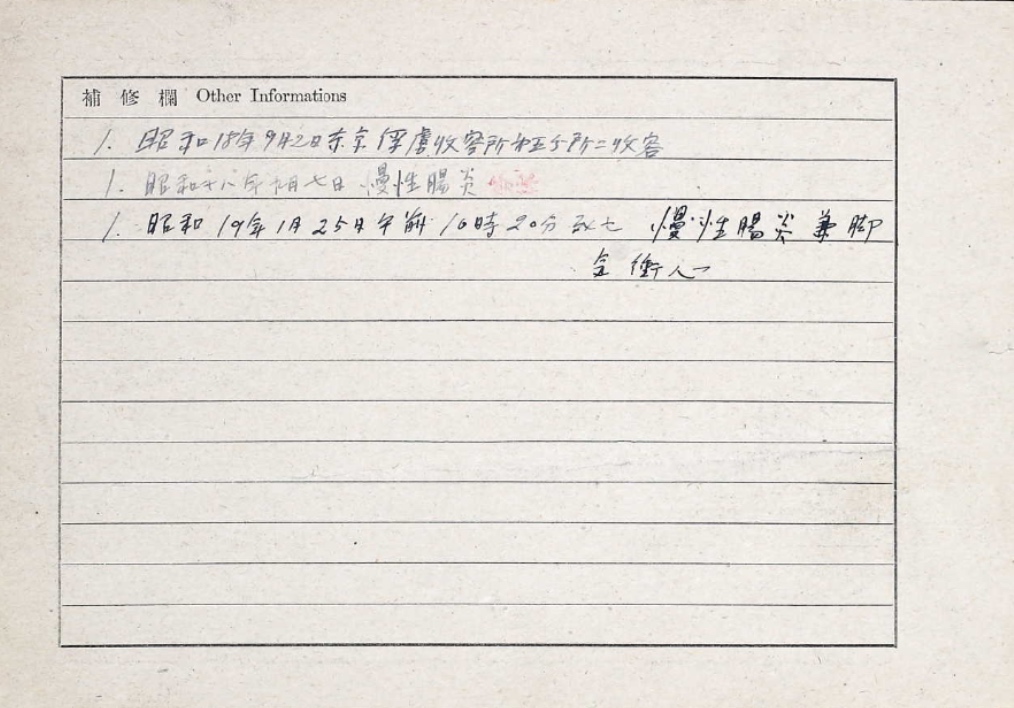 補修欄 Other Informations
1. 昭和18年9月2日東京俘虜收容所第五分所ニ收容
1. 昭和十八年 月七日 慢性腸炎
1. 昭和19年1月25日午前10時20分死亡 慢性腸炎兼脚
氣衝心